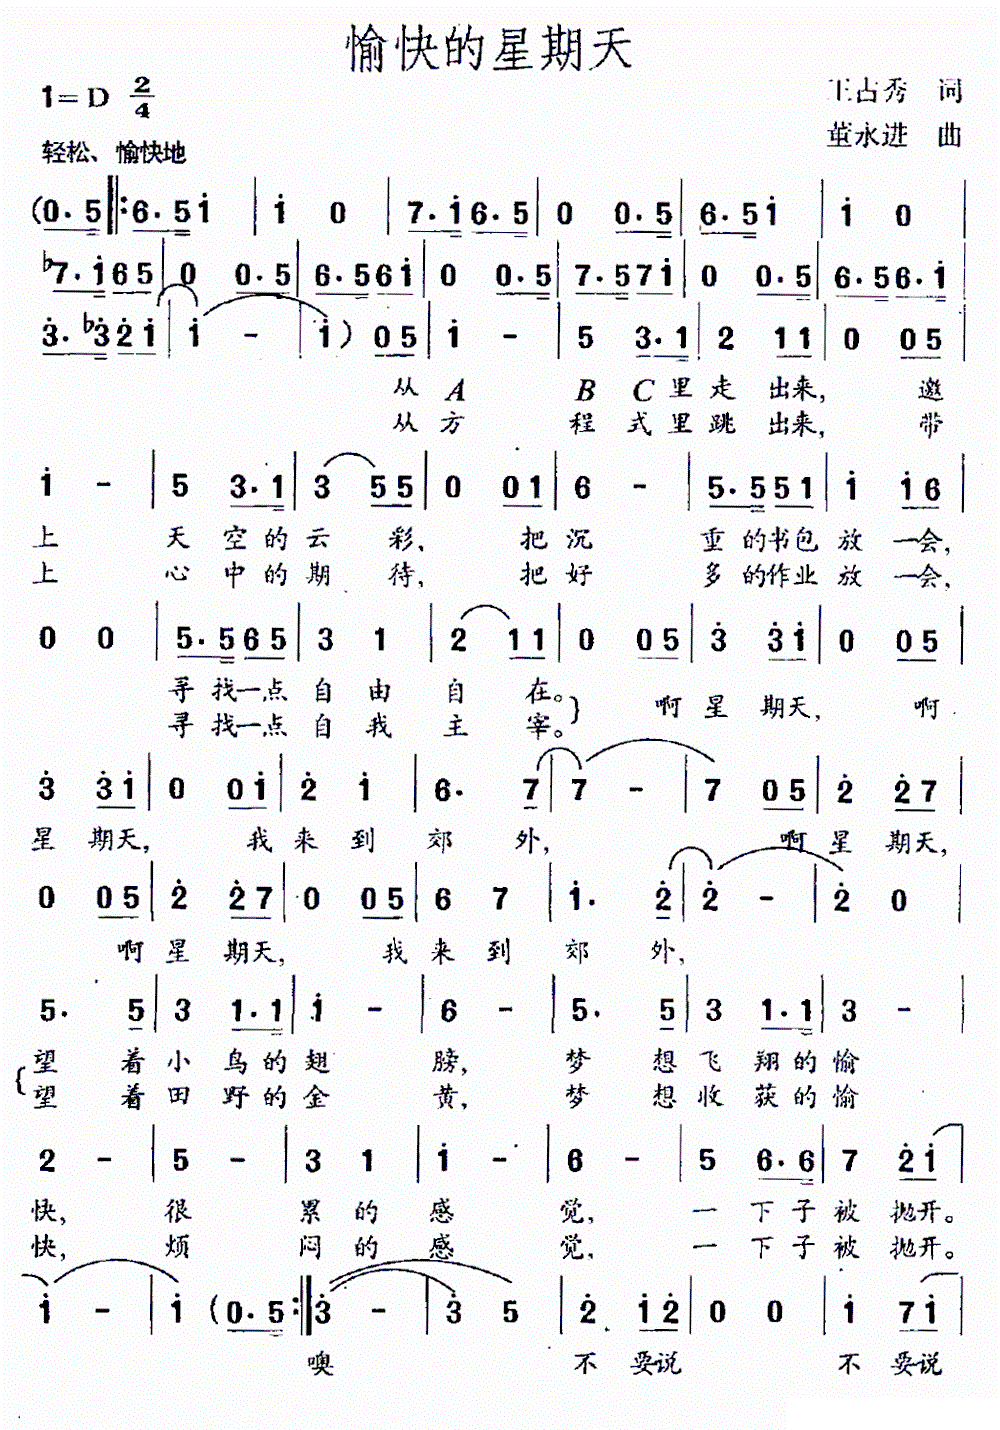 愉快的星期天
1=D 2/4
王占秀 词
董永进 曲
轻松、愉快地
(0.5 ‖: 6.5i | i 0 | 7.i 6.5 | 0 0.5 | 6.5i | i 0 |
♭7.i65 | 0 0.5 | 6.56i | 0 0.5 | 7.57i | 0 0.5 | 6.56.i |
3.♭32i | i - | i) 05 | i - | 5 3.1 | 2 11 | 0 05 |
从A B C里走 出来, 邀
从方 程 式里跳 出来, 带
i - | 5 3.1 | 3 55 | 0 01 | 6 - | 5.551 | i i6 |
上 天 空的云 彩, 把沉 重的书包放 一会,
上 心 中的期 待, 把好 多的作业放 一会,
0 0 | 5.565 | 3 1 | 2 11 | 0 05 | 3 3i | 0 05 |
寻找一点 自 由 自 在。
寻找一点 自 我 主 宰。} 啊星 期天, 啊
3 3i | 0 0i | 2 i | 6. 7 | 7 - | 7 05 | 2 27 |
星 期天, 我来到 郊 外, 啊星 期天,
0 05 | 2 27 | 0 05 | 6 7 | i. 2 | 2 - | 2 0 |
啊星 期天, 我来到 郊 外,
5. 5 | 3 1.1 | i - | 6 - | 5. 5 | 3 1.1 | 3 - |
望 着小 鸟的翅 膀, 梦 想飞 翔的愉
望 着田 野的金 黄, 梦 想收 获的愉
2 - | 5 - | 3 1 | i - | 6 - | 5 6.6 | 7 2i |
快, 很 累 的 感 觉, 一 下子被 抛开。
快, 烦 闷 的 感 觉, 一 下子被 抛开。
i - | i (0.5 :‖ 3 - | 3 5 | 2 i2 | 0 0 | i 7i |
噢 不 要说 不 要说